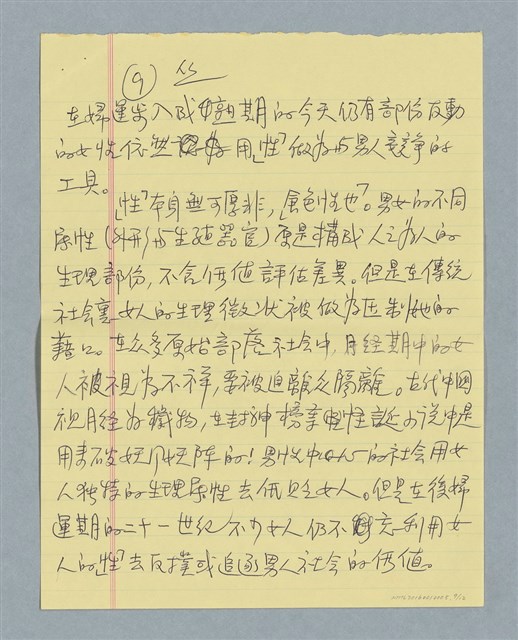 (9)
在婦運步入成熟期的今天仍有部份反動
的女性依然用「性」做為與男人競爭的
工具。
「性」本身無可厚非,「食色性也」。男女的不同
屬性(外形與生殖器官)更是構成人之為人的
生理部份,不含価值評估差異。但是在傳統
社會裏女人的生理徵狀被做為压制她的
藉口。在众多原始部落社会中,月経期中的女
人被視為不祥,要被迫離众隔離。古代中國
視月经为穢物,在封神榜等怪誕小说中是
用來破妖阵的!男性中心的社会用女
人独特的生理屬性去低贬女人。但是在後婦
運期的二十一世紀不少女人仍不忘利用女
人的「性」去反撲或追逐男人社会的価值。